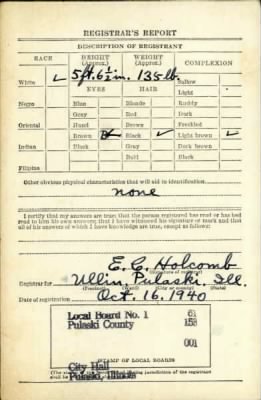 REGISTRAR'S REPORT
DESCRIPTION OF REGISTRANT
RACE HEIGHT (Approx.) WEIGHT (Approx.) COMPLEXION
5 ft. 6½ in. 135 lb.
White ✓ EYES HAIR Sallow
Light
Negro Blue Blonde Ruddy
Gray Red Dark
Oriental Hazel Brown Freckled
Brown ✓ Black ✓ Light brown ✓
Indian Black Gray Dark brown
Bald Black
Filipino
Other obvious physical characteristics that will aid in identification
none
I certify that my answers are true; that the person registered has read or has had
read to him his own answers; that I have witnessed his signature or mark and that
all of his answers of which I have knowledge are true, except as follows:
E. C. Holcomb
(Signature of registrar)
Registrar for Ullin, Pulaski, Ill.
(Precinct) (Ward) (City or county) (State)
Date of registration Oct. 16, 1940
Local Board No. 1 61
Pulaski County 153
001
City Hall
Pulaski, Illinois
(STAMP OF LOCAL BOARD)